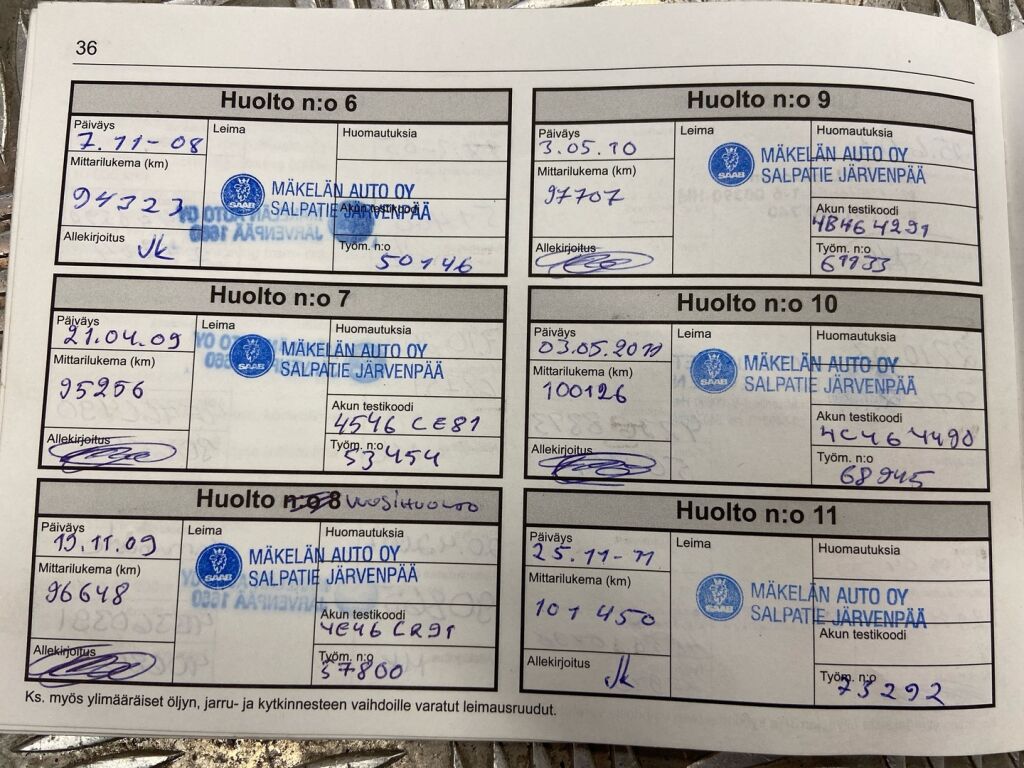 36
Huolto n:o 6
Päiväys
7.11-08
Leima
Huomautuksia
Mittarilukema (km)
94323
SAAB
MÄKELÄN AUTO OY
SALPATIE JÄRVENPÄÄ
Akun testikoodi
Allekirjoitus
Jk
Työm. n:o
50146
Huolto n:o 7
Päiväys
21.04.09
Leima
Huomautuksia
Mittarilukema (km)
95256
SAAB
MÄKELÄN AUTO OY
SALPATIE JÄRVENPÄÄ
Akun testikoodi
4546 CE81
Allekirjoitus
Työm. n:o
53454
Huolto n:o 8 VUOSIHUOLTO
Päiväys
19.11.09
Leima
Huomautuksia
Mittarilukema (km)
96648
SAAB
MÄKELÄN AUTO OY
SALPATIE JÄRVENPÄÄ
Akun testikoodi
4E46 CR91
Allekirjoitus
Työm. n:o
57800
Huolto n:o 9
Päiväys
3.05.10
Leima
Huomautuksia
Mittarilukema (km)
97707
SAAB
MÄKELÄN AUTO OY
SALPATIE JÄRVENPÄÄ
Akun testikoodi
4B464291
Allekirjoitus
Työm. n:o
61933
Huolto n:o 10
Päiväys
03.05.2011
Leima
Huomautuksia
Mittarilukema (km)
100126
SAAB
MÄKELÄN AUTO OY
SALPATIE JÄRVENPÄÄ
Akun testikoodi
4C464490
Allekirjoitus
Työm. n:o
68945
Huolto n:o 11
Päiväys
25.11-11
Leima
Huomautuksia
Mittarilukema (km)
101 450
SAAB
MÄKELÄN AUTO OY
SALPATIE JÄRVENPÄÄ
Akun testikoodi
Allekirjoitus
Jk
Työm. n:o
73292
Ks. myös ylimääräiset öljyn, jarru- ja kytkinnesteen vaihdoille varatut leimausruudut.